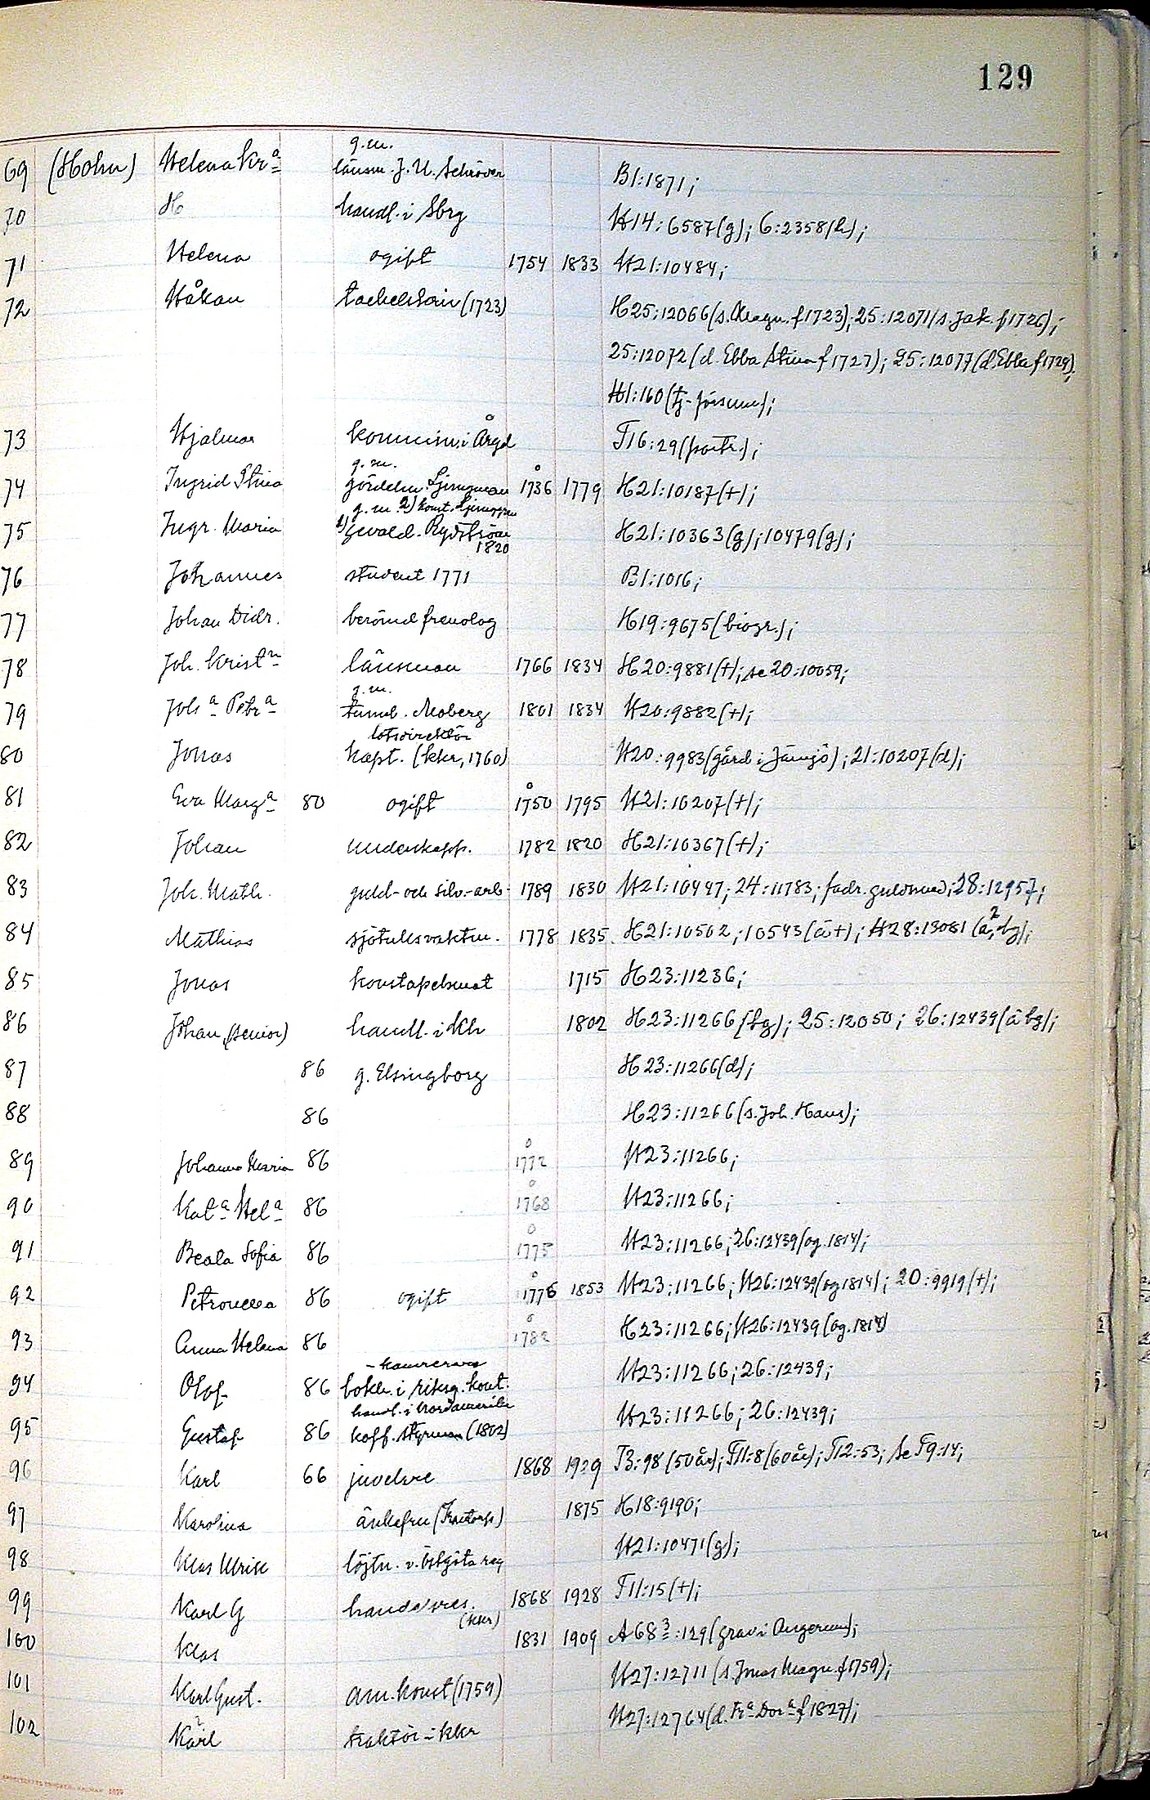 129
g.m.
69 (Holm) Helena Kra länsm. J. U. Schröver B1:1871;
70 H handl. i Sbrg H14:6587(g); 6:2358(h);
71 Helena ogift 1754 1833 H21:10484;
72 Håkan (1723) H25:12066(s. Magn. f 1723); 25:12071(s. Jak. f 1726);
25:12072(d. Ebba Stina f 1727); 25:12077(d. Ebba f 1729);
H1:160
73 Hjalmar komminist. i Åryd T16:29(portr.);
g.m.
74 Ingrid Stina Ljungman 1736 1779 H21:10187(+);
g.m. 2) konst. Ljunggren
75 Ingr. Maria 1) Rydström H21:10363(g); 10479(g);
1820
76 Johannes student 1771 B1:1016;
77 Johan Didr. berömd frenolog H19:9675(biogr.);
78 Joh. Kristn länsman 1766 1834 H20:9881(+); se 20:10059;
g.m.
79 Joha Petra tunnb. Moberg 1801 1834 H20:9882(+);
lotsdirektör
80 Jonas kapt. (kkr, 1760) H20:9983(gård i Jämjö); 21:10207(d);
81 Eva Marga 80 ogift 1750 1795 H21:10207(+);
82 Johan underkapt. 1782 1820 H21:10367(+);
83 Joh. Math. guld- och silv.-arb. 1789 1830 H21:10447; 24:11783; fadr. guldsmed; 28:12957;
84 Mathias sjötullsvaktm. 1778 1835 H21:10502; 10543(ä+); H28:13081
85 Jonas konstapelsmat 1715 H23:11236;
86 Johan (senior) handl. i Kh 1802 H23:11266(bg); 25:12050; 26:12439(ä bg);
87 86 g. Elsingborg H23:11266(d);
88 86 H23:11266(s. Joh. Hans);
89 Johanna Maria 86 1772 H23:11266;
90 Kata Hela 86 1768 H23:11266;
91 Beata Sofia 86 1775 H23:11266; 26:12439(og. 1814);
92 Petronella 86 ogift 1776 1853 H23:11266; H26:12439(og 1814); 20:9919(+);
93 Anna Helena 86 1782 H23:11266; H26:12439(og. 1814)
- kamrerare
94 Olof 86 bokh. i riksg. kont. H23:11266; 26:12439;
handl. i Nordamerika
95 Gustaf 86 koff. styrman (1802) H23:11266; 26:12439;
96 Karl 66 juvelare 1868 1929 T3:98(50 år); T11:8(60 år); T12:53; se T9:14;
97 Karolina änkefru 1875 H18:9190;
98 Klas Ulrik löjtn. v. Östgöta reg H21:10471(g);
99 Karl G handelsres. 1868 1928 T11:15(+);
(kkr)
100 Klas 1831 1909 A683:129(grav i Augerum);
101 Karl Gust. am. konst (1759) H27:12711(s. Jonas Magn. f 1759);
102 Karl traktör i kkr H27:12764(d. Fra Dora f 1827);